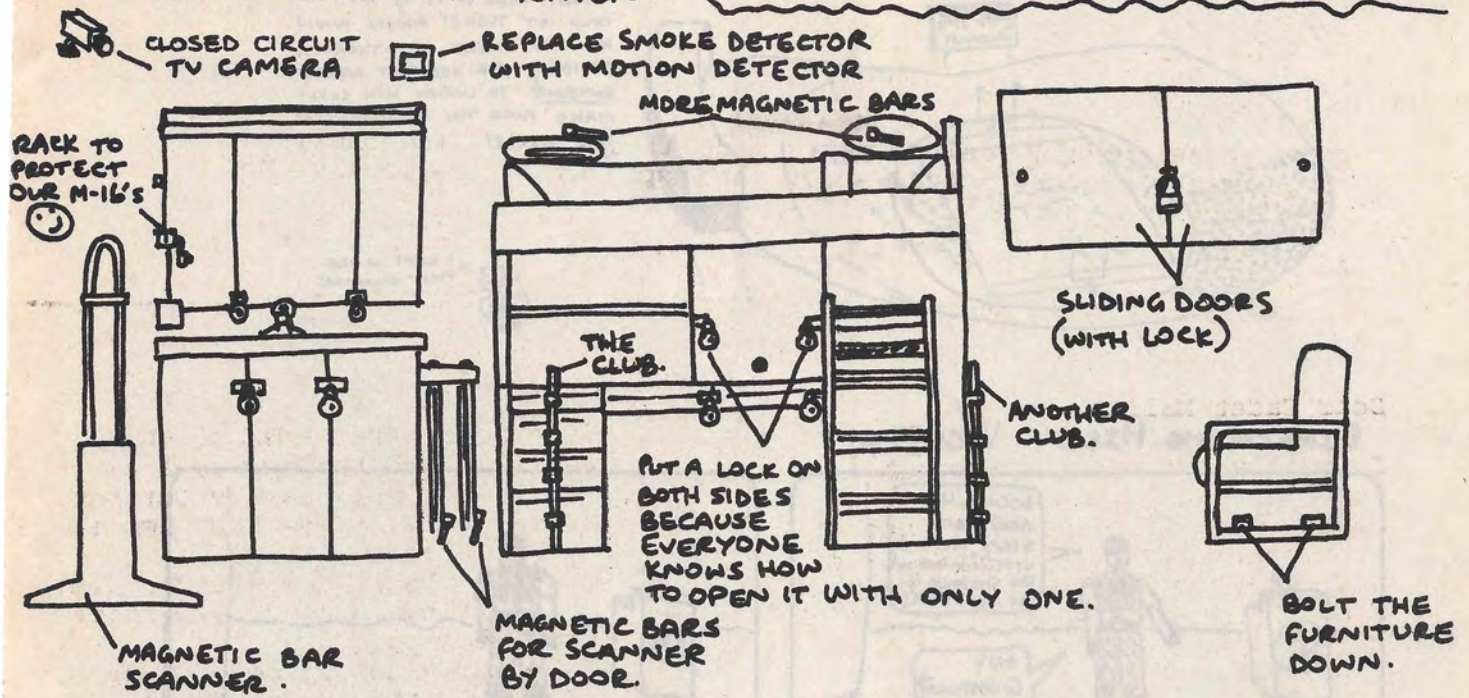 CLOSED CIRCUIT
TV CAMERA
REPLACE SMOKE DETECTOR
WITH MOTION DETECTOR
MORE MAGNETIC BARS
RACK TO
PROTECT
OUR M-16's
SLIDING DOORS
(WITH LOCK)
THE
CLUB.
ANOTHER
CLUB.
PUT A LOCK ON
BOTH SIDES
BECAUSE
EVERYONE
KNOWS HOW
TO OPEN IT WITH ONLY ONE.
BOLT THE
FURNITURE
DOWN.
MAGNETIC BAR
SCANNER.
MAGNETIC BARS
FOR SCANNER
BY DOOR.